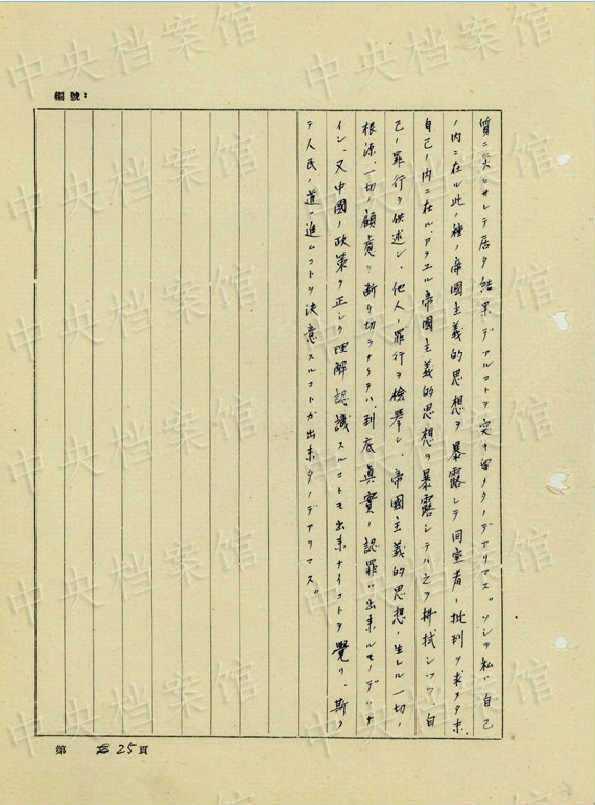 編號：
質ニ災ヒサレテ居タ結果デアルコトヲ突キ留メタノデアリマス。ソシテ私ハ自己
ノ内ニ在ル此ノ種ノ帝國主義的思想ヲ暴露シテ同室者ノ批判ヲ求メタ
自己ノ内ニ在ル、アラユル帝國主義的思想ヲ暴露シテハ之ヲ拂拭シツツ、自
己ノ罪行ヲ供述シ、他人ノ罪行ヲ檢擧シ、帝國主義的思想ノ生レル一切ノ
根源、一切ノ顧慮ヲ断チ切ラナクテハ、到底真實ノ認罪ハ出来ルモノデハナ
イシ、又中國ノ政策ヲ正シク理解認識スルコトモ出来ナイコトヲ覺リ、斯クテ
人民ノ道ヘ進ムコトヲ決意スルコトガ出来タノデアリマス。
第 25頁
中央档案馆